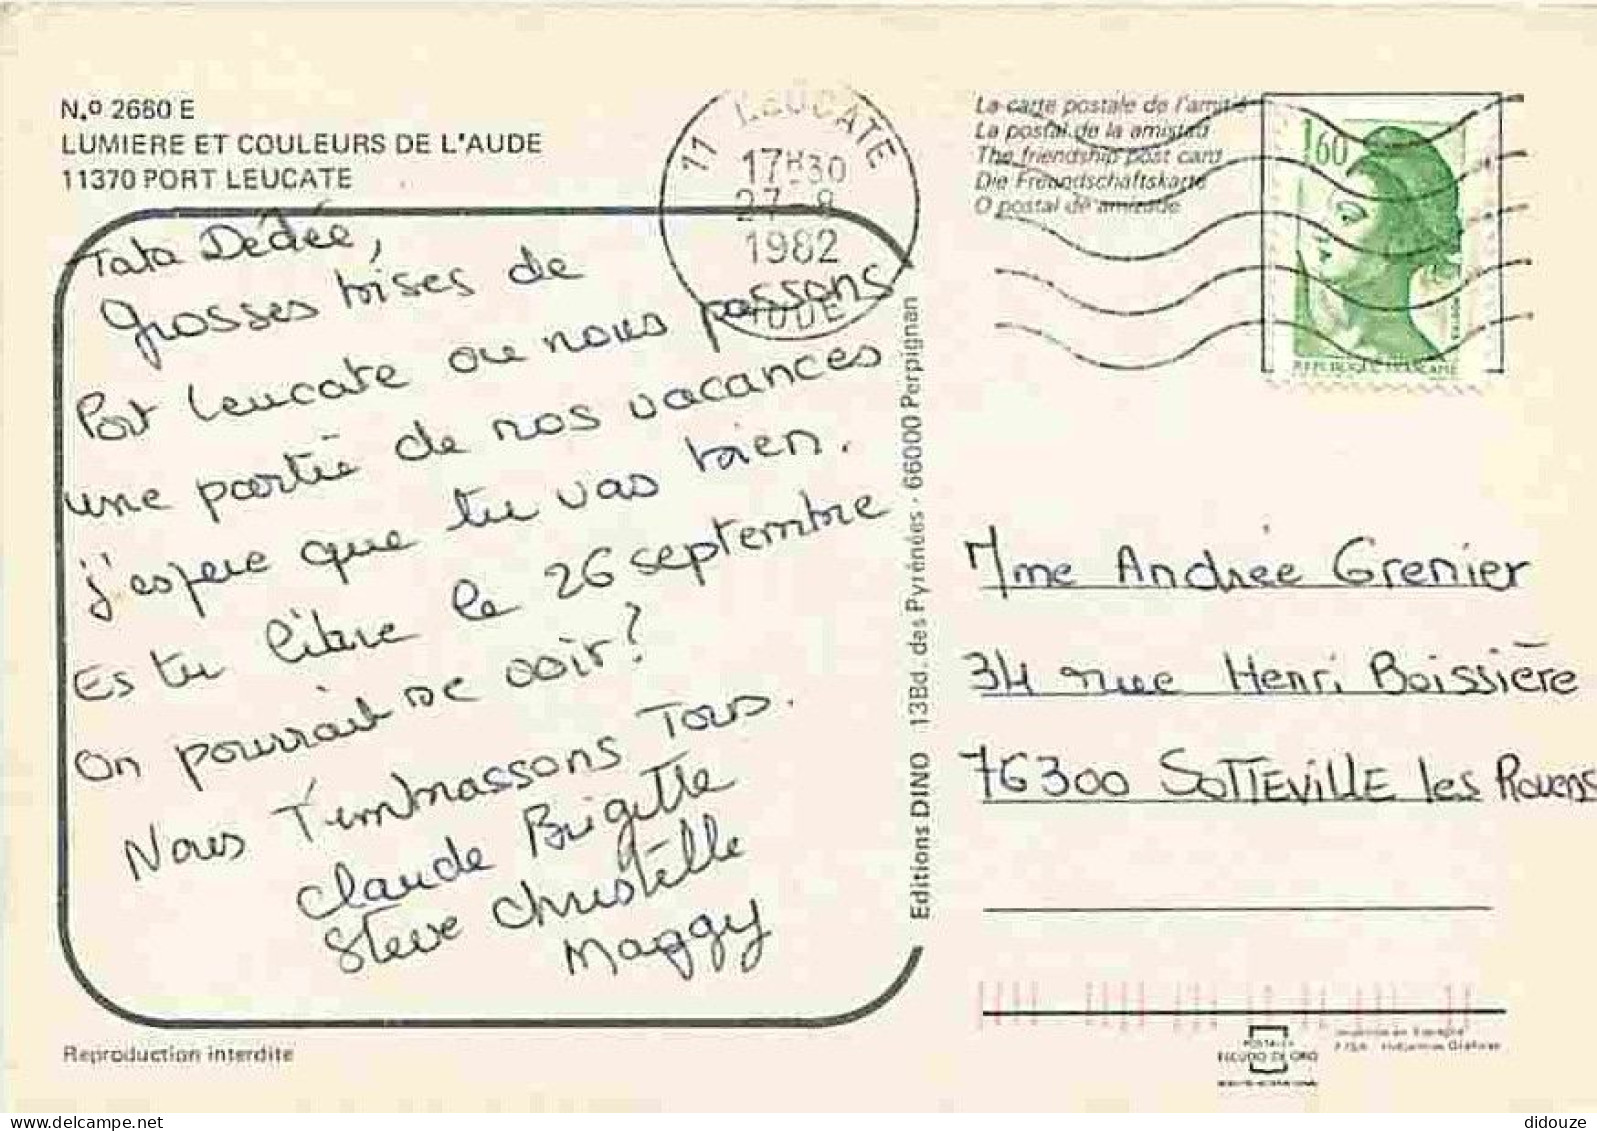 N.º 2680 E
LUMIERE ET COULEURS DE L'AUDE
11370 PORT LEUCATE
11 LEUCATE
17H30
27-8
1982
AUDE
La carte postale de l'amitié
La postal de la amistad
The friendship post card
Die Freundschaftskarte
O postal de amizade
1,60
REPUBLIQUE FRANCAISE
Tata Dédée,
Grosses bises de
Port Leucate ou nous passons
une partie de nos vacances
j'espere que tu vas bien.
Es tu libre le 26 septembre
On pourrait se voir?
Nous T'embrassons Tous.
Claude Brigitte
Steve Christelle
Maggy
Editions DINO 13Bd. des Pyrénées - 66000 Perpignan
Mme Andrée Grenier
34 rue Henri Boissière
76300 SOTTEVILLE les Rouens
Reproduction interdite
POSTALES
ESCUDO DE ORO
didouze